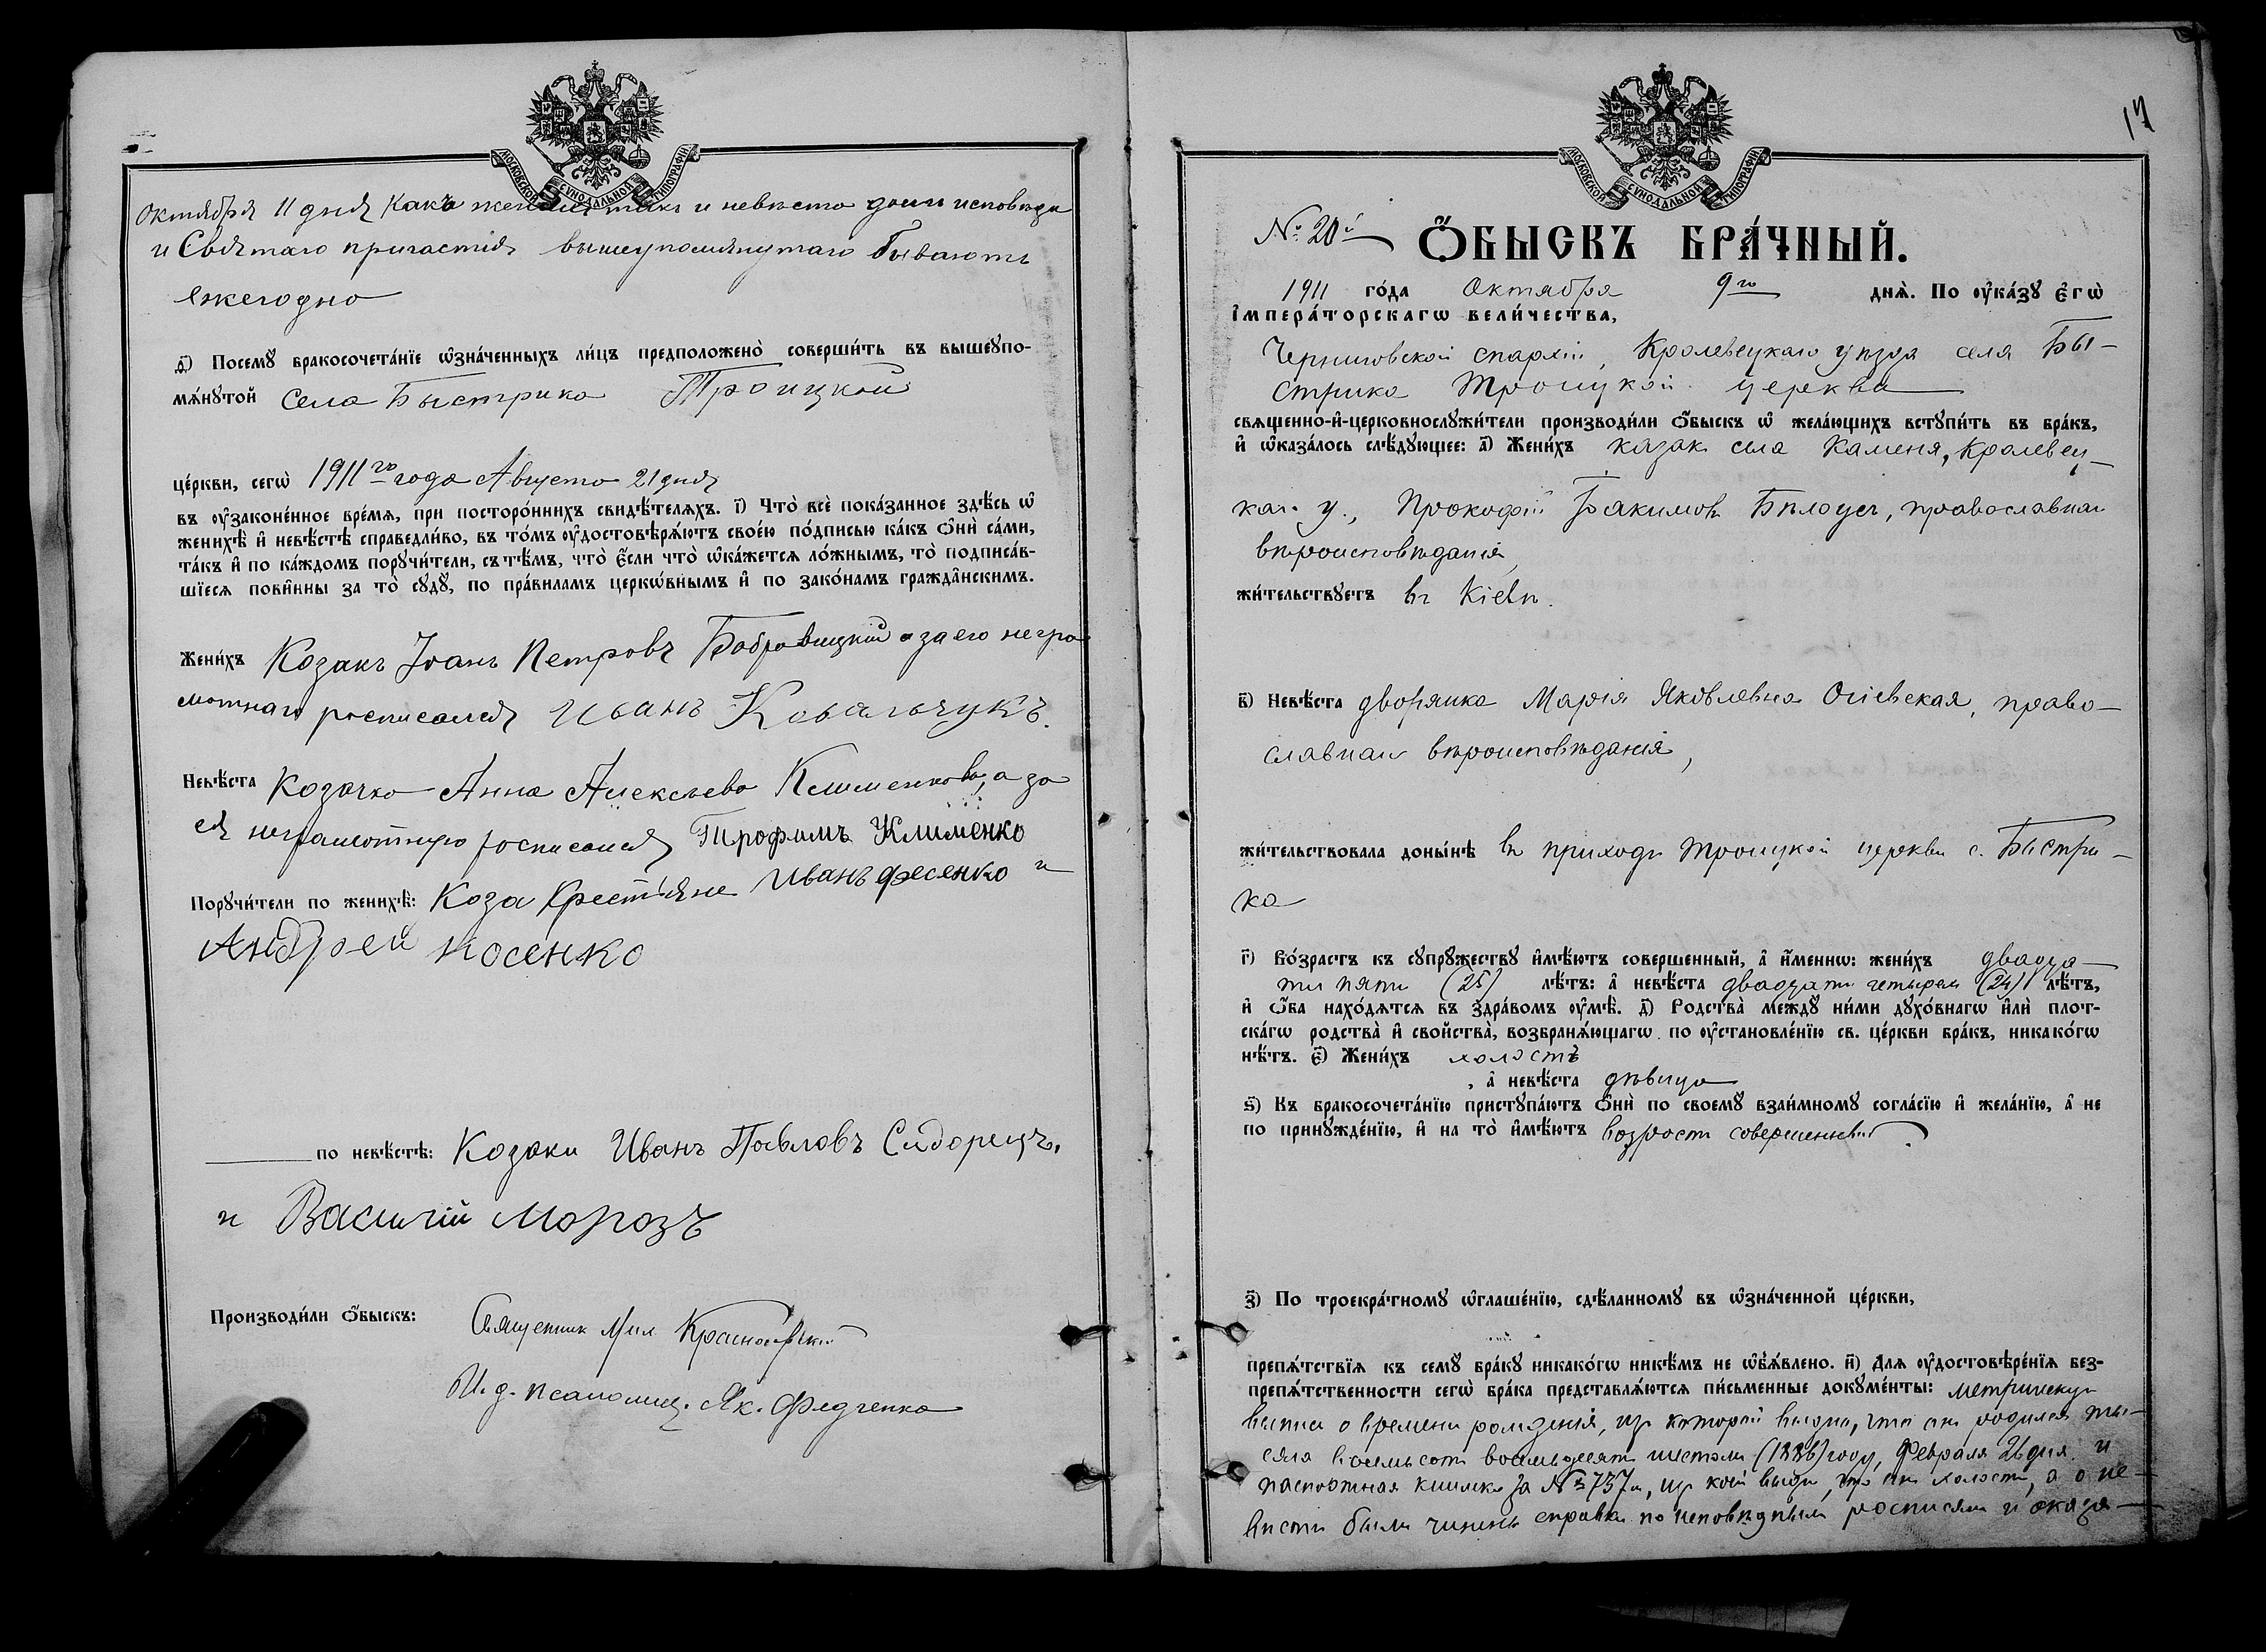 МОСКОВСКОЙ СУНОДАЛЬНОЙ ТИПОГРАФІИ
Октября 11 дня какъ женихъ такъ и невѣста дома исповѣди
и Святаго причастія вышеупомянутаго бываютъ
ежегодно
д҃) Посемꙋ бракосочета́нїе ѡ҆зна́ченныхъ ли́цъ предположено̀ соверши́ть въ вышеꙋпо-
мѧ́нꙋтой Села Быстрика Троицкой
це́ркви, сегѡ̀ 1911го года Августа 21 дня
въ ᲂу҆законе́нное вре́мѧ, при посторо́ннихъ свидѣ́телѧхъ. і҃) Что̀ всѐ пока́занное здѣ́сь ѡ҆
женихѣ̀ и҆ невѣ́стѣ справедли́во, въ то́мъ ᲂу҆достовѣрѧ́ютъ свое́ю по́дписью ка́къ ѻ҆нѝ са́ми,
та́къ и҆ по ка́ждомъ порꙋчи́тели, съ тѣ́мъ, что̀ є҆́сли что̀ ѡ҆ка́жется ло́жнымъ, то̀ подписа́в-
шїесѧ пови́нны за то̀ сꙋдꙋ̀, по пра́виламъ церко́внымъ и҆ по зако́намъ гражда́нскимъ.
Жени́хъ Козакъ Іоанъ Петровъ Бобровицкій а за его негра
мотнаго росписался Иванъ Ковальчукъ.
Невѣ́ста Козачка Анна Алексѣева Клименкова, а за
ея неграмотную росписался Трофимъ Клименко
Порꙋчи́тели по женихѣ̀: Коза Крестьяне Иванъ Фесенко и
Андрей Косенко
по невѣ́стѣ: Козаки Иванъ Павловъ Сидорецъ.
и Василій Морозъ
Производи́ли ѻ҆́быскъ: Священник Мих
И. д. псаломщ. Як. Федченко
17
МОСКОВСКОЙ СУНОДАЛЬНОЙ ТИПОГРАФІИ
№ 20й Ѻ҆́БЫСКЪ БРА́ЧНЫЙ.
1911 го́да Октября 9го днѧ̀. По ᲂу҆ка́зꙋ є҆гѡ̀
і҆мпера́торскагѡ вели́чества,
Черниговской епархіи, Кролевецкаго уѣзда села Бы-
стрика Троицкой церкви
свѧщенно-и҆-церковнослꙋжи́тели производи́ли ѻ҆́быскъ ѡ҆ жела́ющихъ встꙋпи́ть въ бра́къ,
и҆ ѡ҆каза́лось слѣ́дꙋющее: а҃) Жени́хъ казакъ села Каменя, Кролевец-
каг. у., Прокофій Іоакимовъ Бѣлоусъ, православнаго
вѣроисповѣданія,
жи́тельствꙋетъ въ Кіевѣ.
в҃) Невѣ́ста дворянка Марія Яковлевна Огіевская, право-
славнаго вѣроисповѣданія,
жи́тельствовала доны́нѣ въ приходѣ Троицкой церкви с. Быстри-
ка
г҃) Во́зрастъ къ сꙋпрꙋ́жествꙋ и҆мѣ́ютъ совершенный, а҆ и҆́меннѡ: жени́хъ двадца-
ти пяти (25) лѣ́тъ: а҆ невѣ́ста двадцати четырехъ (24) лѣ́тъ,
и҆ ѻ҆́ба нахо́дѧтсѧ въ здра́вомъ ᲂу҆мѣ̀. д҃) Родства̀ междꙋ̀ ни́ми дꙋхо́внагѡ и҆лѝ плот-
ска́гѡ родства̀ и҆ свойства̀, возбранѧ́ющагѡ по ᲂу҆становле́нїю св. це́ркви бра́къ, никако́гѡ
нѣ́тъ. є҃) Жени́хъ холостъ
, а҆ невѣ́ста дѣвица
ѕ҃) Къ бракосочета́нїю пристꙋпа́ютъ ѻ҆нѝ по своемꙋ̀ взаи́мномꙋ согла́сїю и҆ жела́нїю, а҆ не
по принꙋжде́нїю, и҆ на то̀ и҆мѣ́ютъ возрастъ совершенный.
з҃) По троекра́тномꙋ ѡ҆глаше́нїю, сдѣ́ланномꙋ въ ѡ҆зна́ченной це́ркви,
препѧ́тствїѧ къ семꙋ̀ бра́кꙋ никако́гѡ никѣ́мъ не ѡ҆б̾ѧ́влено. и҃) Для ᲂу҆достовѣре́нїѧ без-
препѧ́тственности сегѡ̀ бра́ка представлѧ́ютсѧ пи́сьменные докꙋме́нты:
о времени рожденія, изъ которой видно, что онъ родился ты-
сяча восемьсотъ восемьдесятъ шестомъ (1886) году, Февраля 26 дня. и
паспортная книжка за № 737м, изъ коей видно, что онъ холостъ, а о не-
вѣстѣ были справки по исповѣднымъ росписямъ и оказа-